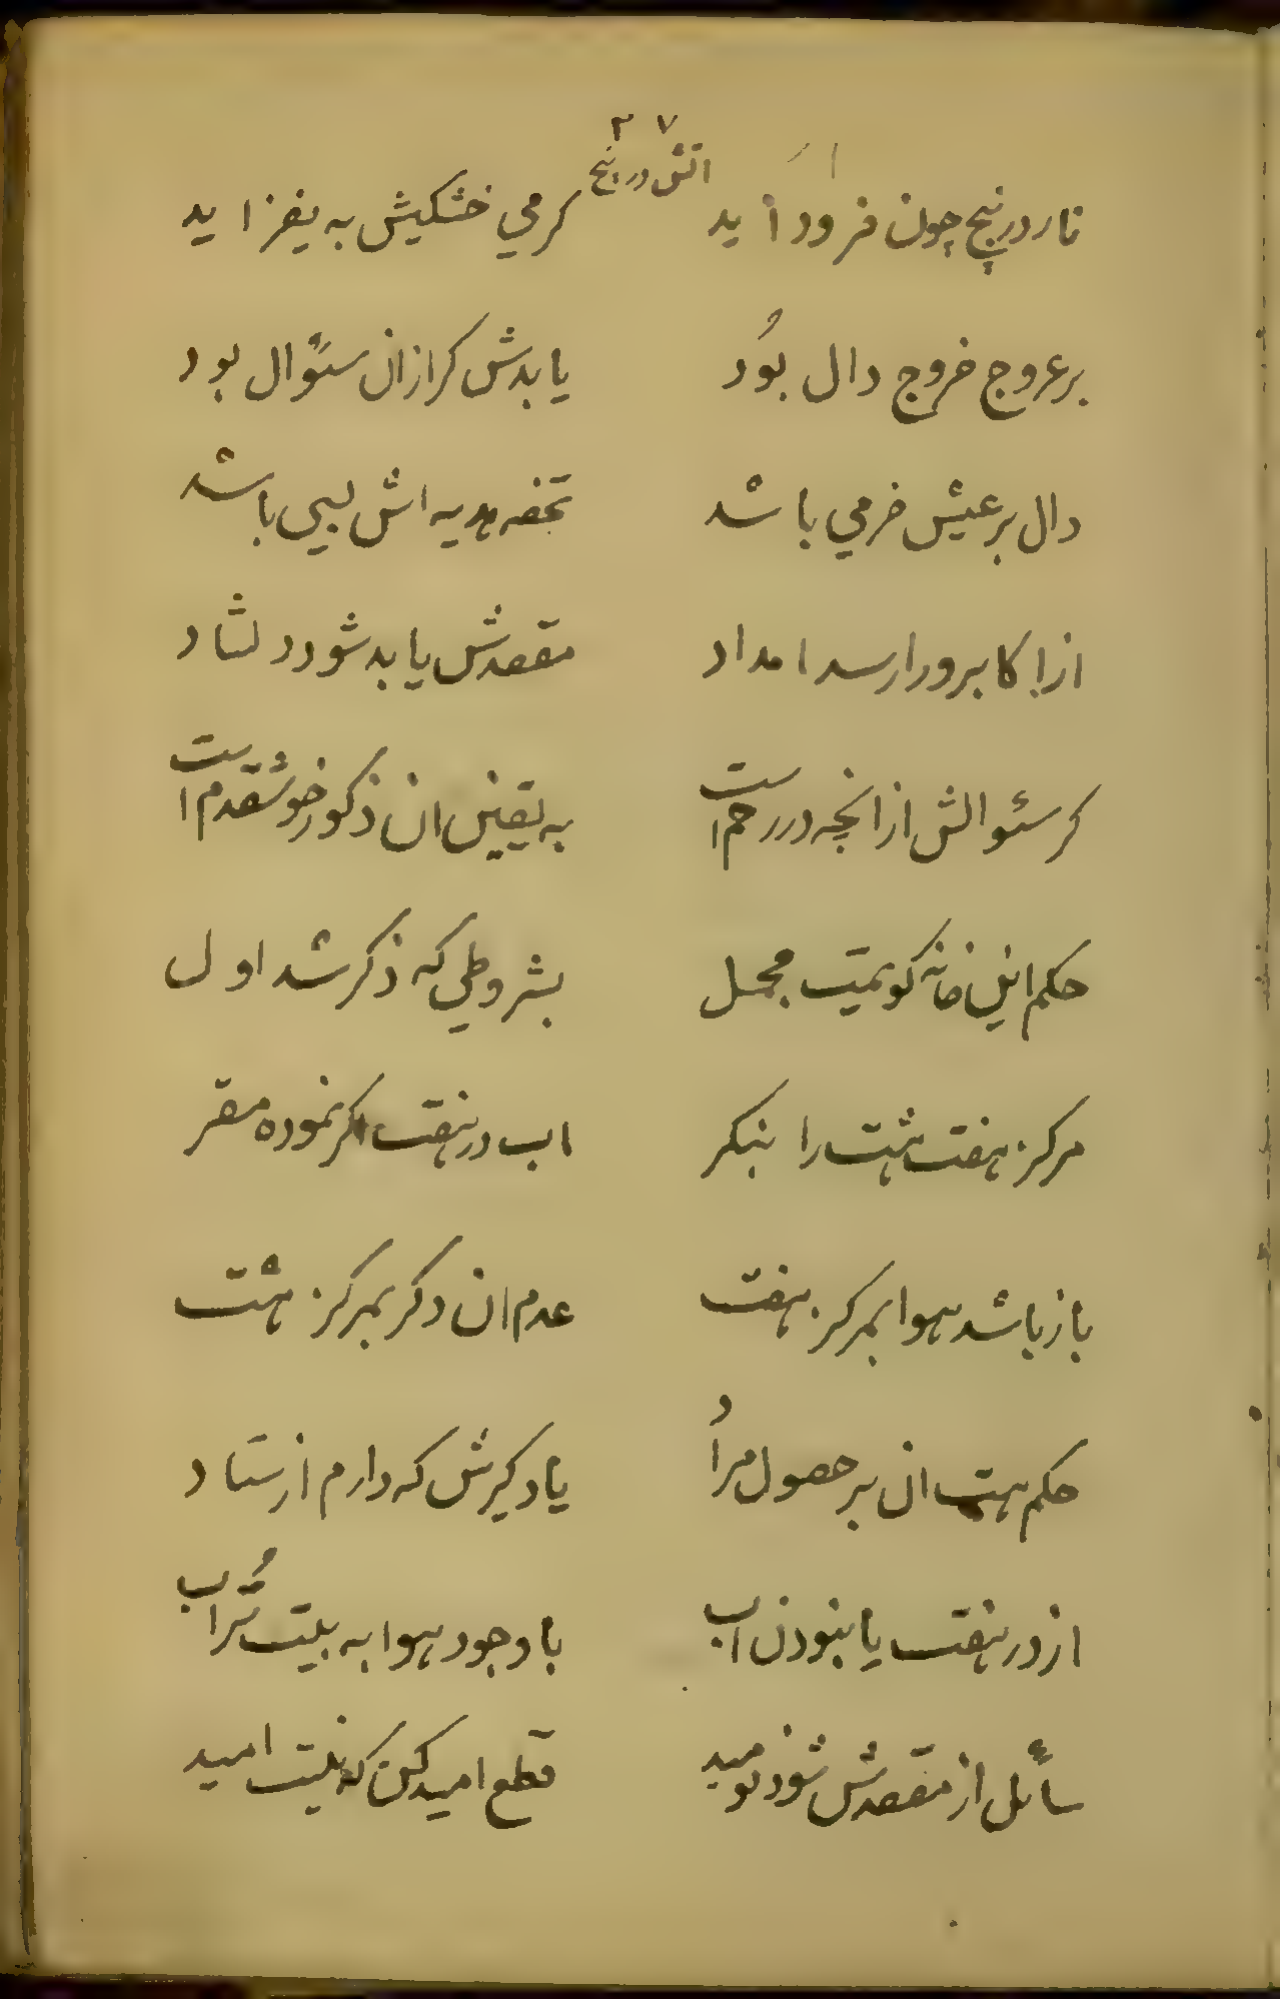 ۲۷
اتش در پنج
نار در پنج چون فرود آید
کرمي خشکیش به یفزاید
بر عروج خروج دال بُود
یابدش کر ازان سئوال بود
دال بر عیش خرمي باشد
تحفه هدیه اش لبي باشد
از اکابر ورا رسد امداد
مقصدش یابد شود دلشاد
کر سئوالش از انچه در رحم است
به یقین ان ذکور خوشقدم است
حکم این خانه کویمت مجمل
بشروطي که ذکر شد اول
مرکز هفت هشت را بنکر
اب در هفت اکر نموده مقر
باز باشد هوا بمرکز هفت
عدم ان دکر بمرکز هشت
حکم هست ان بر حصول مراد
یاد کیرش که دارم از ستاد
از در هفت یا نبودن اب
با وجود هوا به بیت تُراب
سائل از مقصدش شود نومید
قطع امید کن که نیست امید